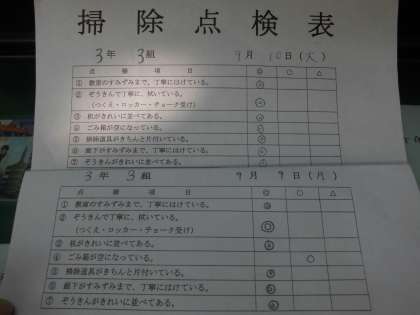 掃除点検表
3年 3組 9月 10日(火)
点検項目 ◎ ○ △
① 教室のすみずみまで、丁寧にはけている。
② ぞうきんで丁寧に、拭いている。
(つくえ・ロッカー・チョーク受け)
③ 机がきれいに並べてある。
④ ごみ箱が空になっている。
⑤ 掃除道具がきちんと片付いている。
⑥ 廊下がすみずみまで、丁寧にはけている。
⑦ ぞうきんがきれいに並べてある。
3年 3組 9月 9日(月)
点検項目 ◎ ○ △
① 教室のすみずみまで、丁寧にはけている。 ◎
② ぞうきんで丁寧に、拭いている。
(つくえ・ロッカー・チョーク受け) ◎
③ 机がきれいに並べてある。 ◎
④ ごみ箱が空になっている。 ○
⑤ 掃除道具がきちんと片付いている。 ◎
⑥ 廊下がすみずみまで、丁寧にはけている。 ◎
⑦ ぞうきんがきれいに並べてある。 ◎